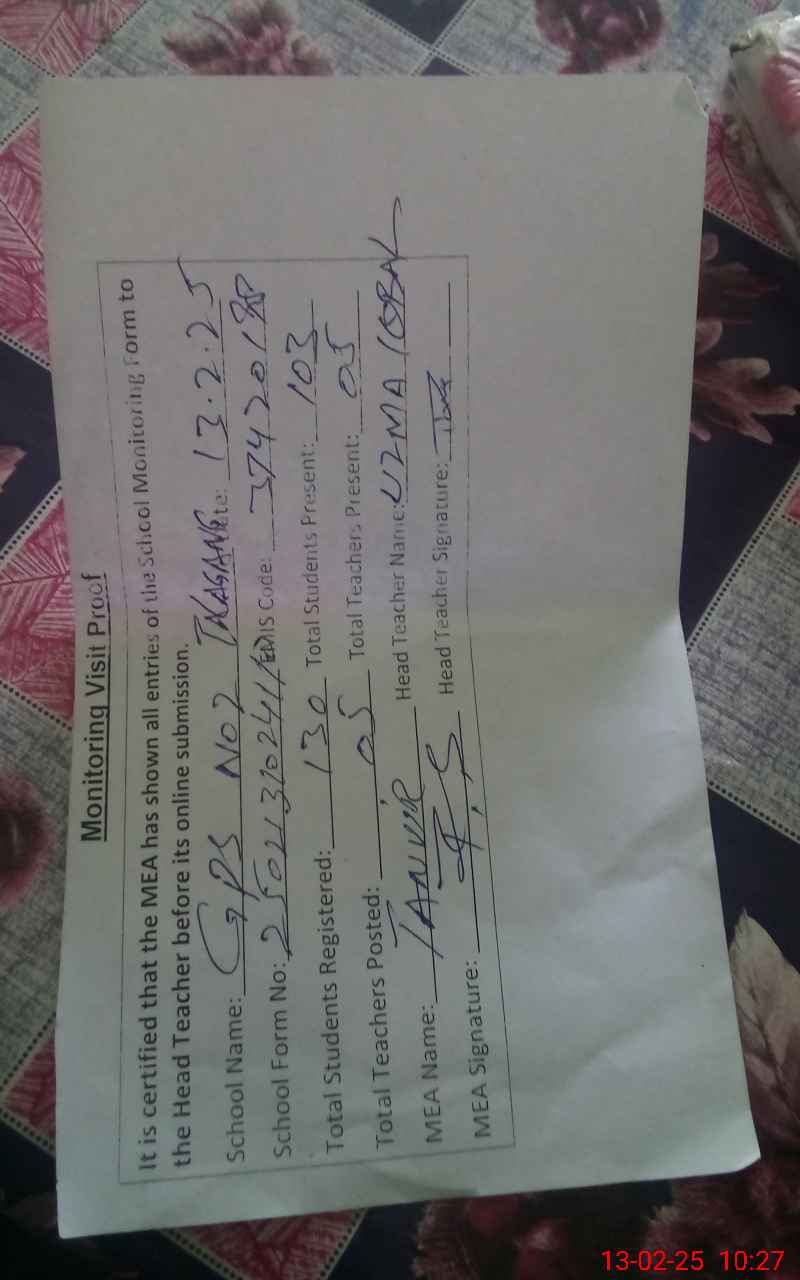 Monitoring Visit Proof
It is certified that the MEA has shown all entries of the School Monitoring Form to
the Head Teacher before its online submission.
School Name: GPS NO2 Date: 13.2.25
School Form No: EMIS Code: 37420188
Total Students Registered: 130 Total Students Present: 103
Total Teachers Posted: 05 Total Teachers Present: 05
MEA Name: TANVIR Head Teacher Name: UZMA IQBAL
MEA Signature: Head Teacher Signature:
13-02-25 10:27